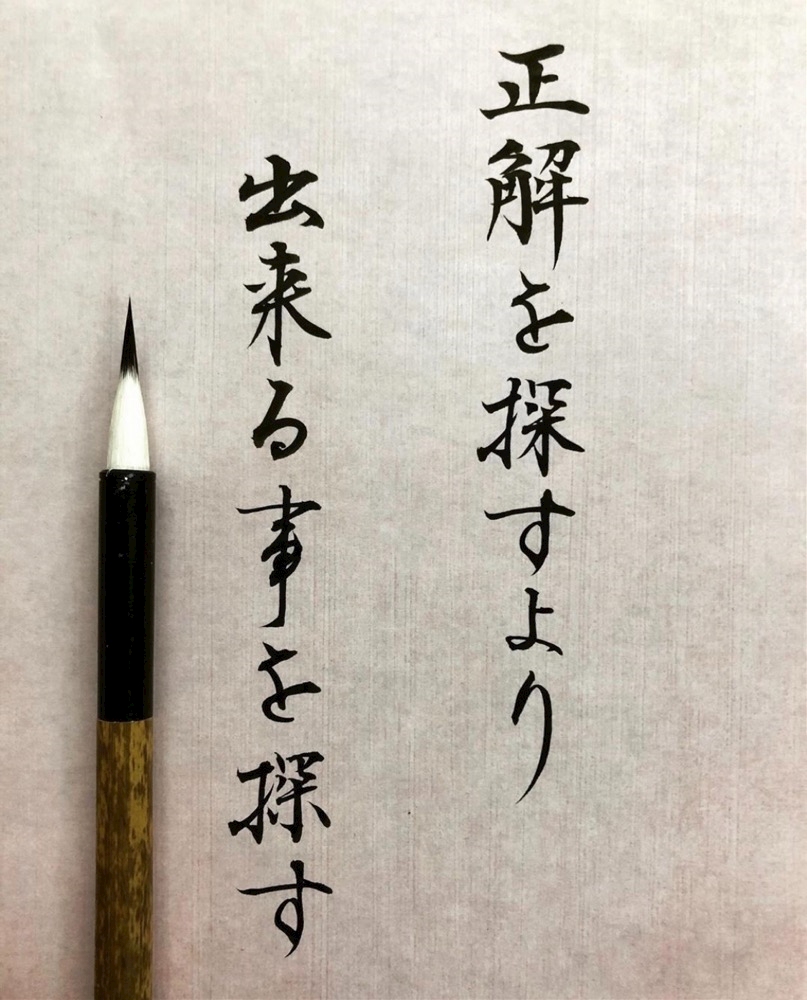 正解を探すより
出来る事を探す